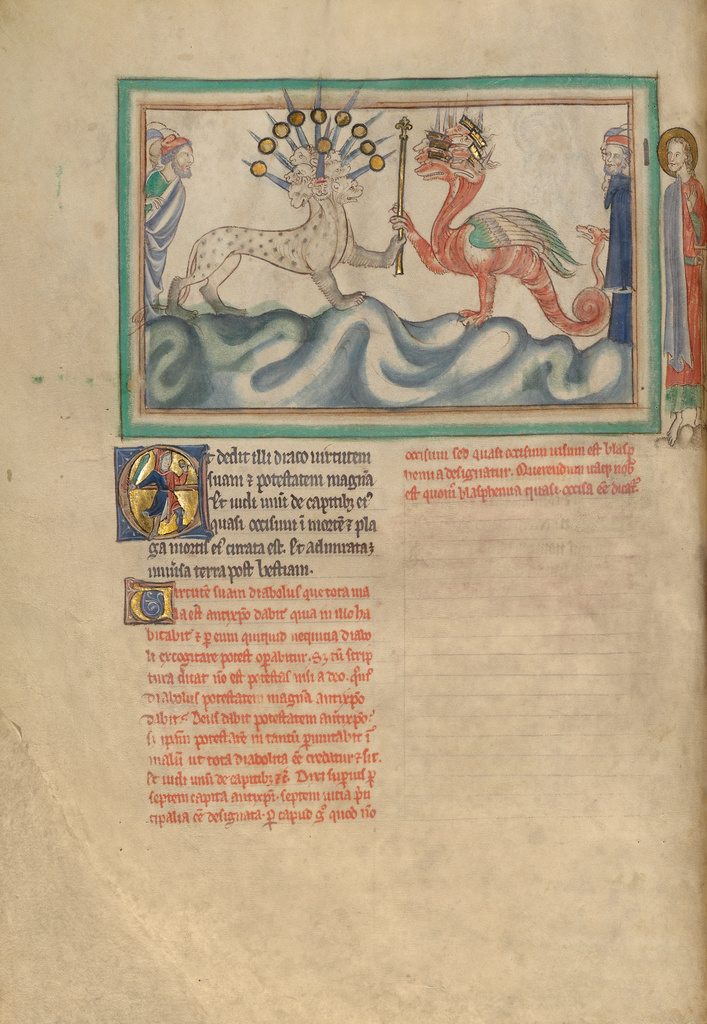 Et dedit illi draco uirtutem
suam ⁊ potestatem magnā
Et uidi unū de capitibȝ eiꝰ
quasi occisum ī mortē ⁊ pla
ga mortis eiꝰ curata est. Et admirataȝ
uniūsa terra post bestiam.
Virtutē suam diabolus que tota ma
la est antixp̄o dabit quia in illo ha
bitabit ⁊ ꝑ eum quicquid nequitia diabo
li excogitare potest oꝑabitur. Sȝ cū scrip
tura dicat nō est potestas nisi a deo.
diabolus potestatem magnā antixp̄o
dabit. Deus dabit potestatem antixp̄o.
s; ipsam potestatē in tantū ꝑmutabit ī
malū ut tota diabolica eē credatur ⁊ sit.
Et uidi unū de capitibȝ ⁊c̄. Dixi suꝑius ꝑ
septem capita antixp̄i. septem uitia p̄n
cipalia eē designata. ꝑ capud gͦ quod nō
occisum sed quasi occisum uisum est blasp
hemia designatur. Querendum itaqȝ nob̄
est quom̄ blasphemia quasi occisa eē dicatᷣ.